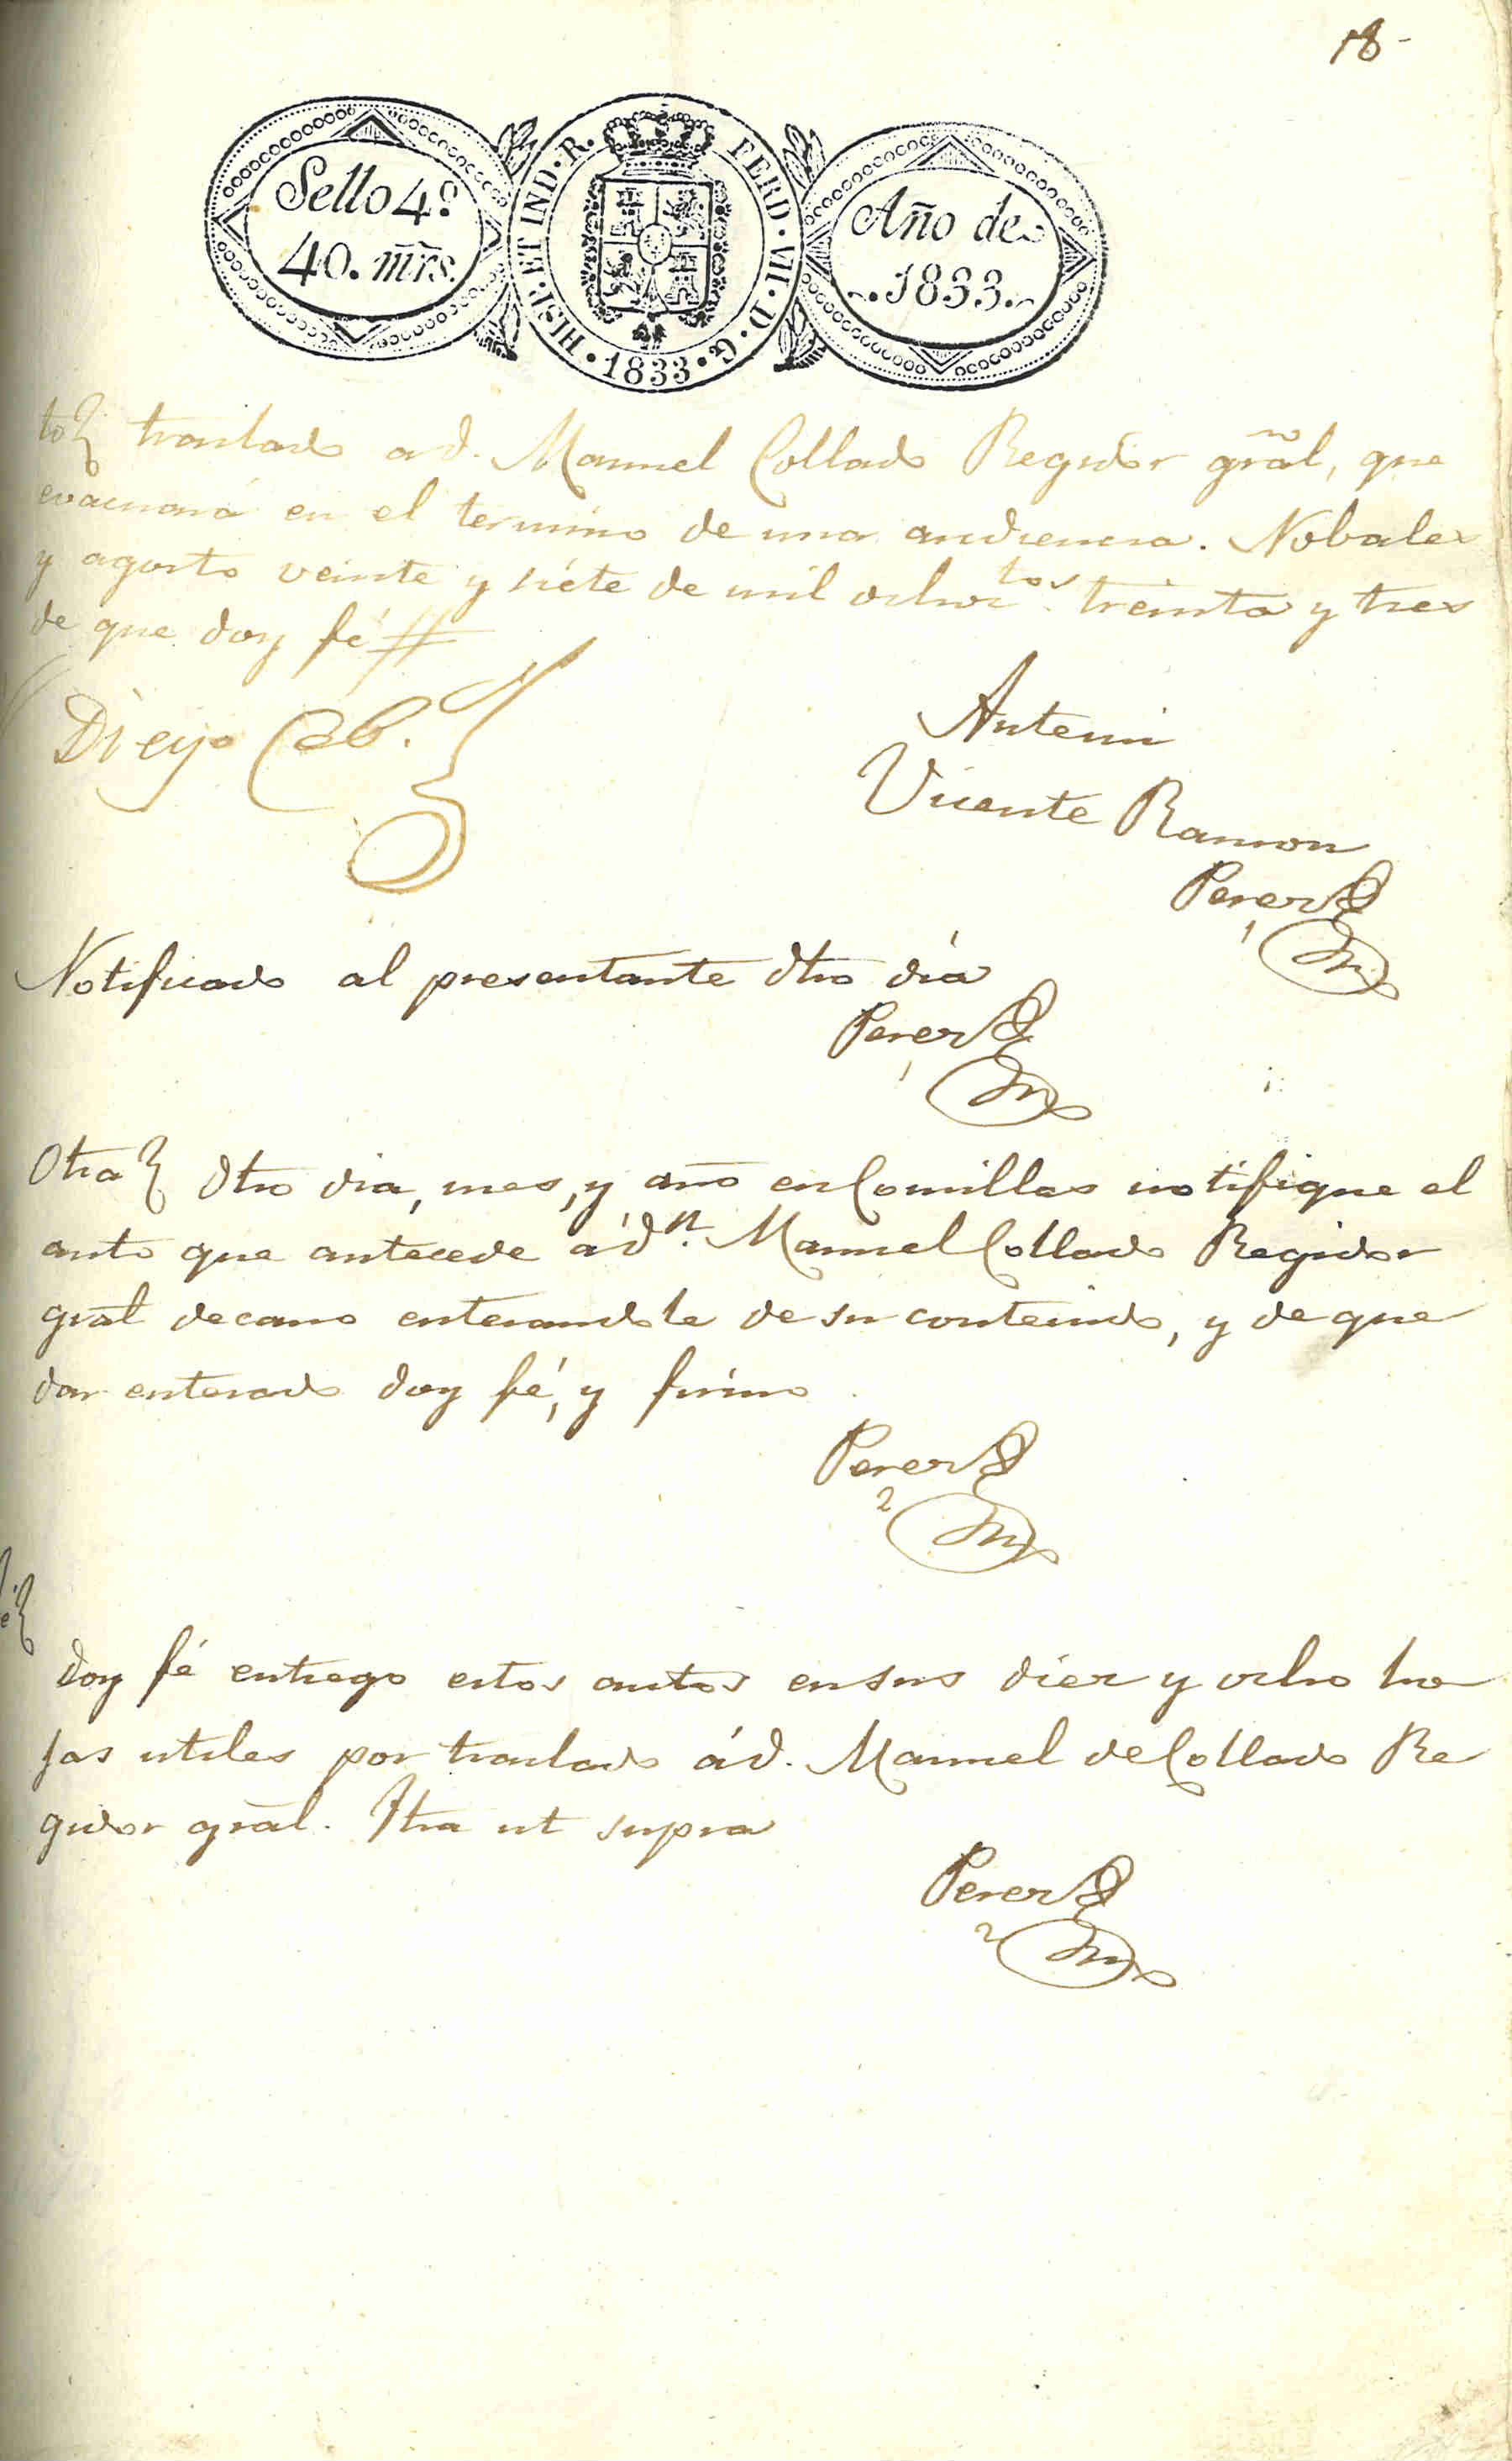 18-
Sello 4º
40. mrs.
HISP. ET IND. R. FERD. VII. D. G. 1833.
Año de
1833.
to traslado a d. Manuel Collado Regidor gral, que
evacuará en el termino de una audiencia. Nobales
y agosto veinte y siete de mil ochoctos. treinta y tres
de que doy fé
Diego Cob.
Antemi
Vicente Ramon
Perez
Notificado al presentante dho dia
Perez
Otra dho dia, mes, y año en Comillas notifique el
auto que antecede á dn. Manuel Collado Regidor
gral decano enterandole de su contenido, y de que
dar enterado doy fé, y firmo
Perez
Doy fé entrego estos autos en sus diez y ocho ho
jas utiles por traslado á d. Manuel de Collado Re
gidor gral. Fha ut supra
Perez